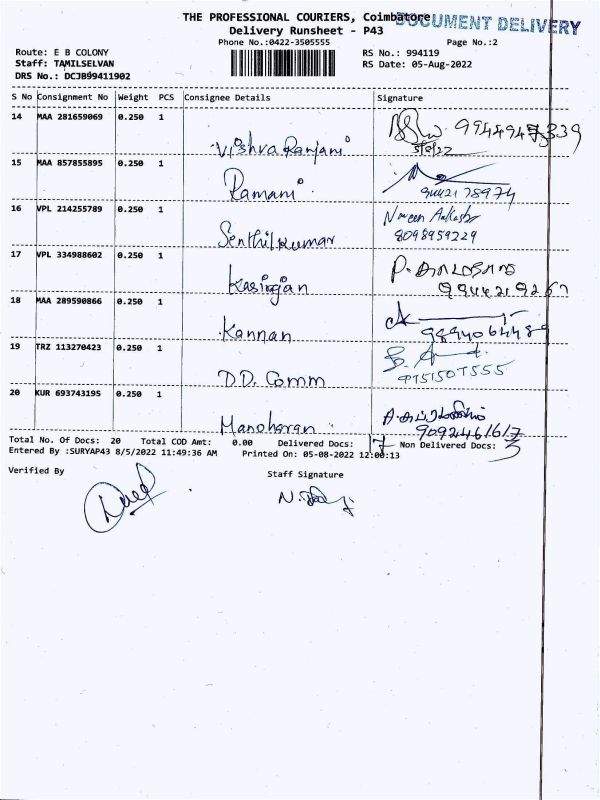 THE PROFESSIONAL COURIERS, Coimbatore
DOCUMENT DELIVERY
Delivery Runsheet - P43
Phone No.:0422-3505555 Page No.:2
Route: E B COLONY RS No.: 994119
Staff: TAMILSELVAN RS Date: 05-Aug-2022
DRS No.: DCJB99411902
S No Consignment No Weight PCS Consignee Details Signature
14 MAA 281659069 0.250 1
Vishva Ranjani
5/8/22
15 MAA 857855895 0.250 1
Ramani 9442178974
16 VPL 214255789 0.250 1 Naveen
Senthilkumar 8098959229
17 VPL 334988602 0.250 1
Kasirajan
18 MAA 289590866 0.250 1
Kannan 9894064489
19 TRZ 113270423 0.250 1
D.D. Comm 9751507555
20 KUR 693743195 0.250 1
Manoharan 9092461617
Total No. Of Docs: 20 Total COD Amt: 0.00 Delivered Docs: 17 Non Delivered Docs: 3
Entered By :SURYAP43 8/5/2022 11:49:36 AM Printed On: 05-08-2022 12:00:13
Verified By Staff Signature